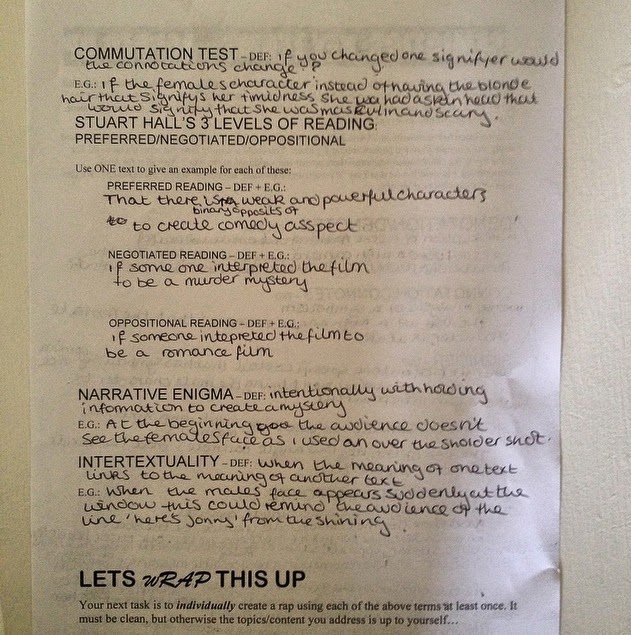 COMMUTATION TEST – DEF: if you changed one signifyer would
the connotations change?
E.G.: if the females character instead of having the blonde
hair that signifys her timidness she wa had a skin head that
would signify that she was maskulin and scary.
STUART HALL'S 3 LEVELS OF READING:
PREFERRED/NEGOTIATED/OPPOSITIONAL
Use ONE text to give an example for each of these:
PREFERRED READING – DEF + E.G.:
That there is weak and powerful characters
binary opposits of
to to create comedy asspect
NEGOTIATED READING – DEF + E.G.:
if some one interpreted the film
to be a murder mystery
OPPOSITIONAL READING – DEF + E.G.:
if someone intepreted the film to
be a romance film
NARRATIVE ENIGMA – DEF: intentionally withholding
information to create a mystery
E.G.: At the beginning the audience doesn't
see the females face as i used an over the sholder shot.
INTERTEXTUALITY – DEF: when the meaning of one text
links to the meaning of another text
E.G.: When the males face appears suddenly at the
window this could remind the audience of the
line 'here's jonny' from the shining.
LETS wRAP THIS UP
Your next task is to individually create a rap using each of the above terms at least once. It
must be clean, but otherwise the topics/content you address is up to yourself…